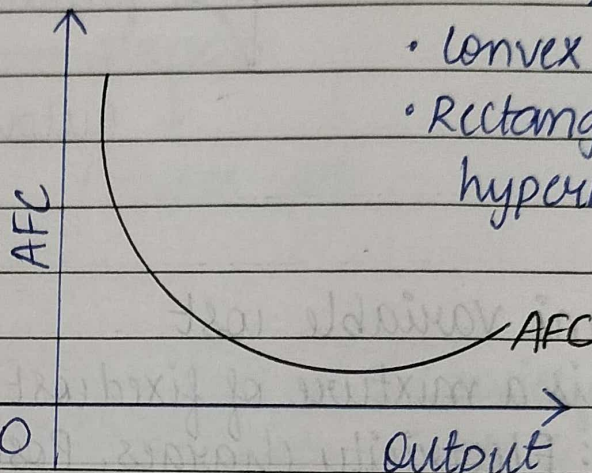 • Convex
• Rectang
hyper
AFC
AFC
O
Output